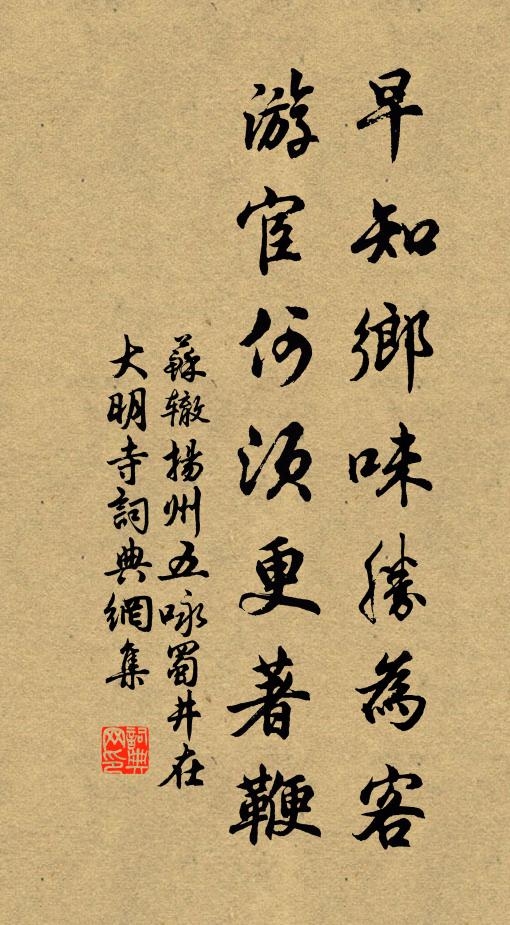 早知鄉味勝為客
游宦何須更著鞭
蘇轍揚州五咏蜀井在
大明寺詞典網集
詞典网印